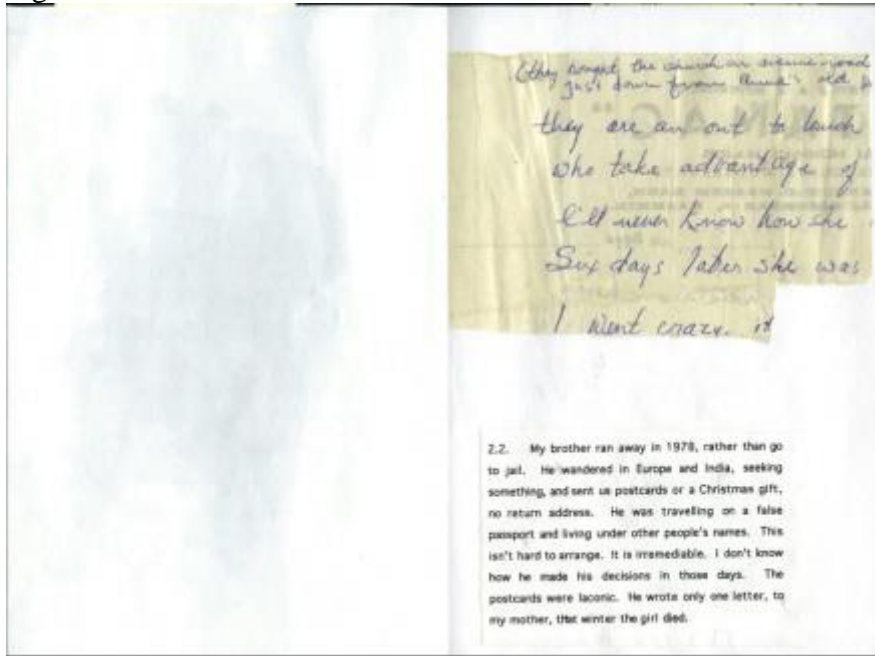 (they bought the church on avenue road
just down from Anna's old
they are an out to lunch
who take advantage of
I'll never know how she
Six days later she was
I went crazy. it
2.2. My brother ran away in 1978, rather than go
to jail. He wandered in Europe and India, seeking
something, and sent us postcards or a Christmas gift,
no return address. He was travelling on a false
passport and living under other people's names. This
isn't hard to arrange. It is irremediable. I don't know
how he made his decisions in those days. The
postcards were laconic. He wrote only one letter, to
my mother, that winter the girl died.